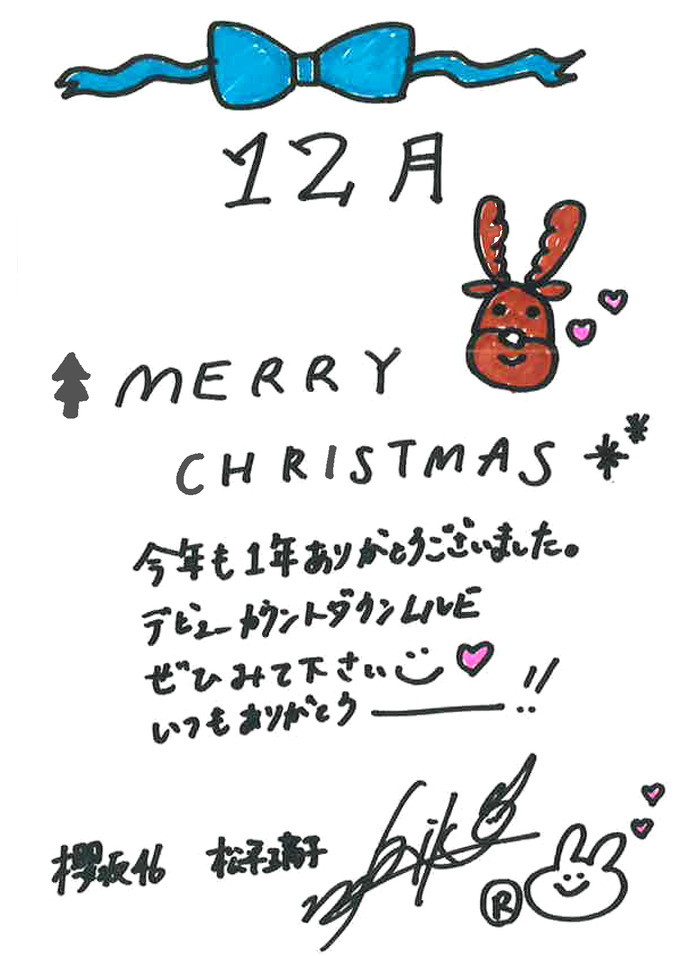 12月
MERRY
CHRISTMAS
今年も1年ありがとうございました。
デビューカウントダウンLIVE
ぜひみて下さい
いつもありがとう ー !!
櫻坂46 松平璃子
Riko
R